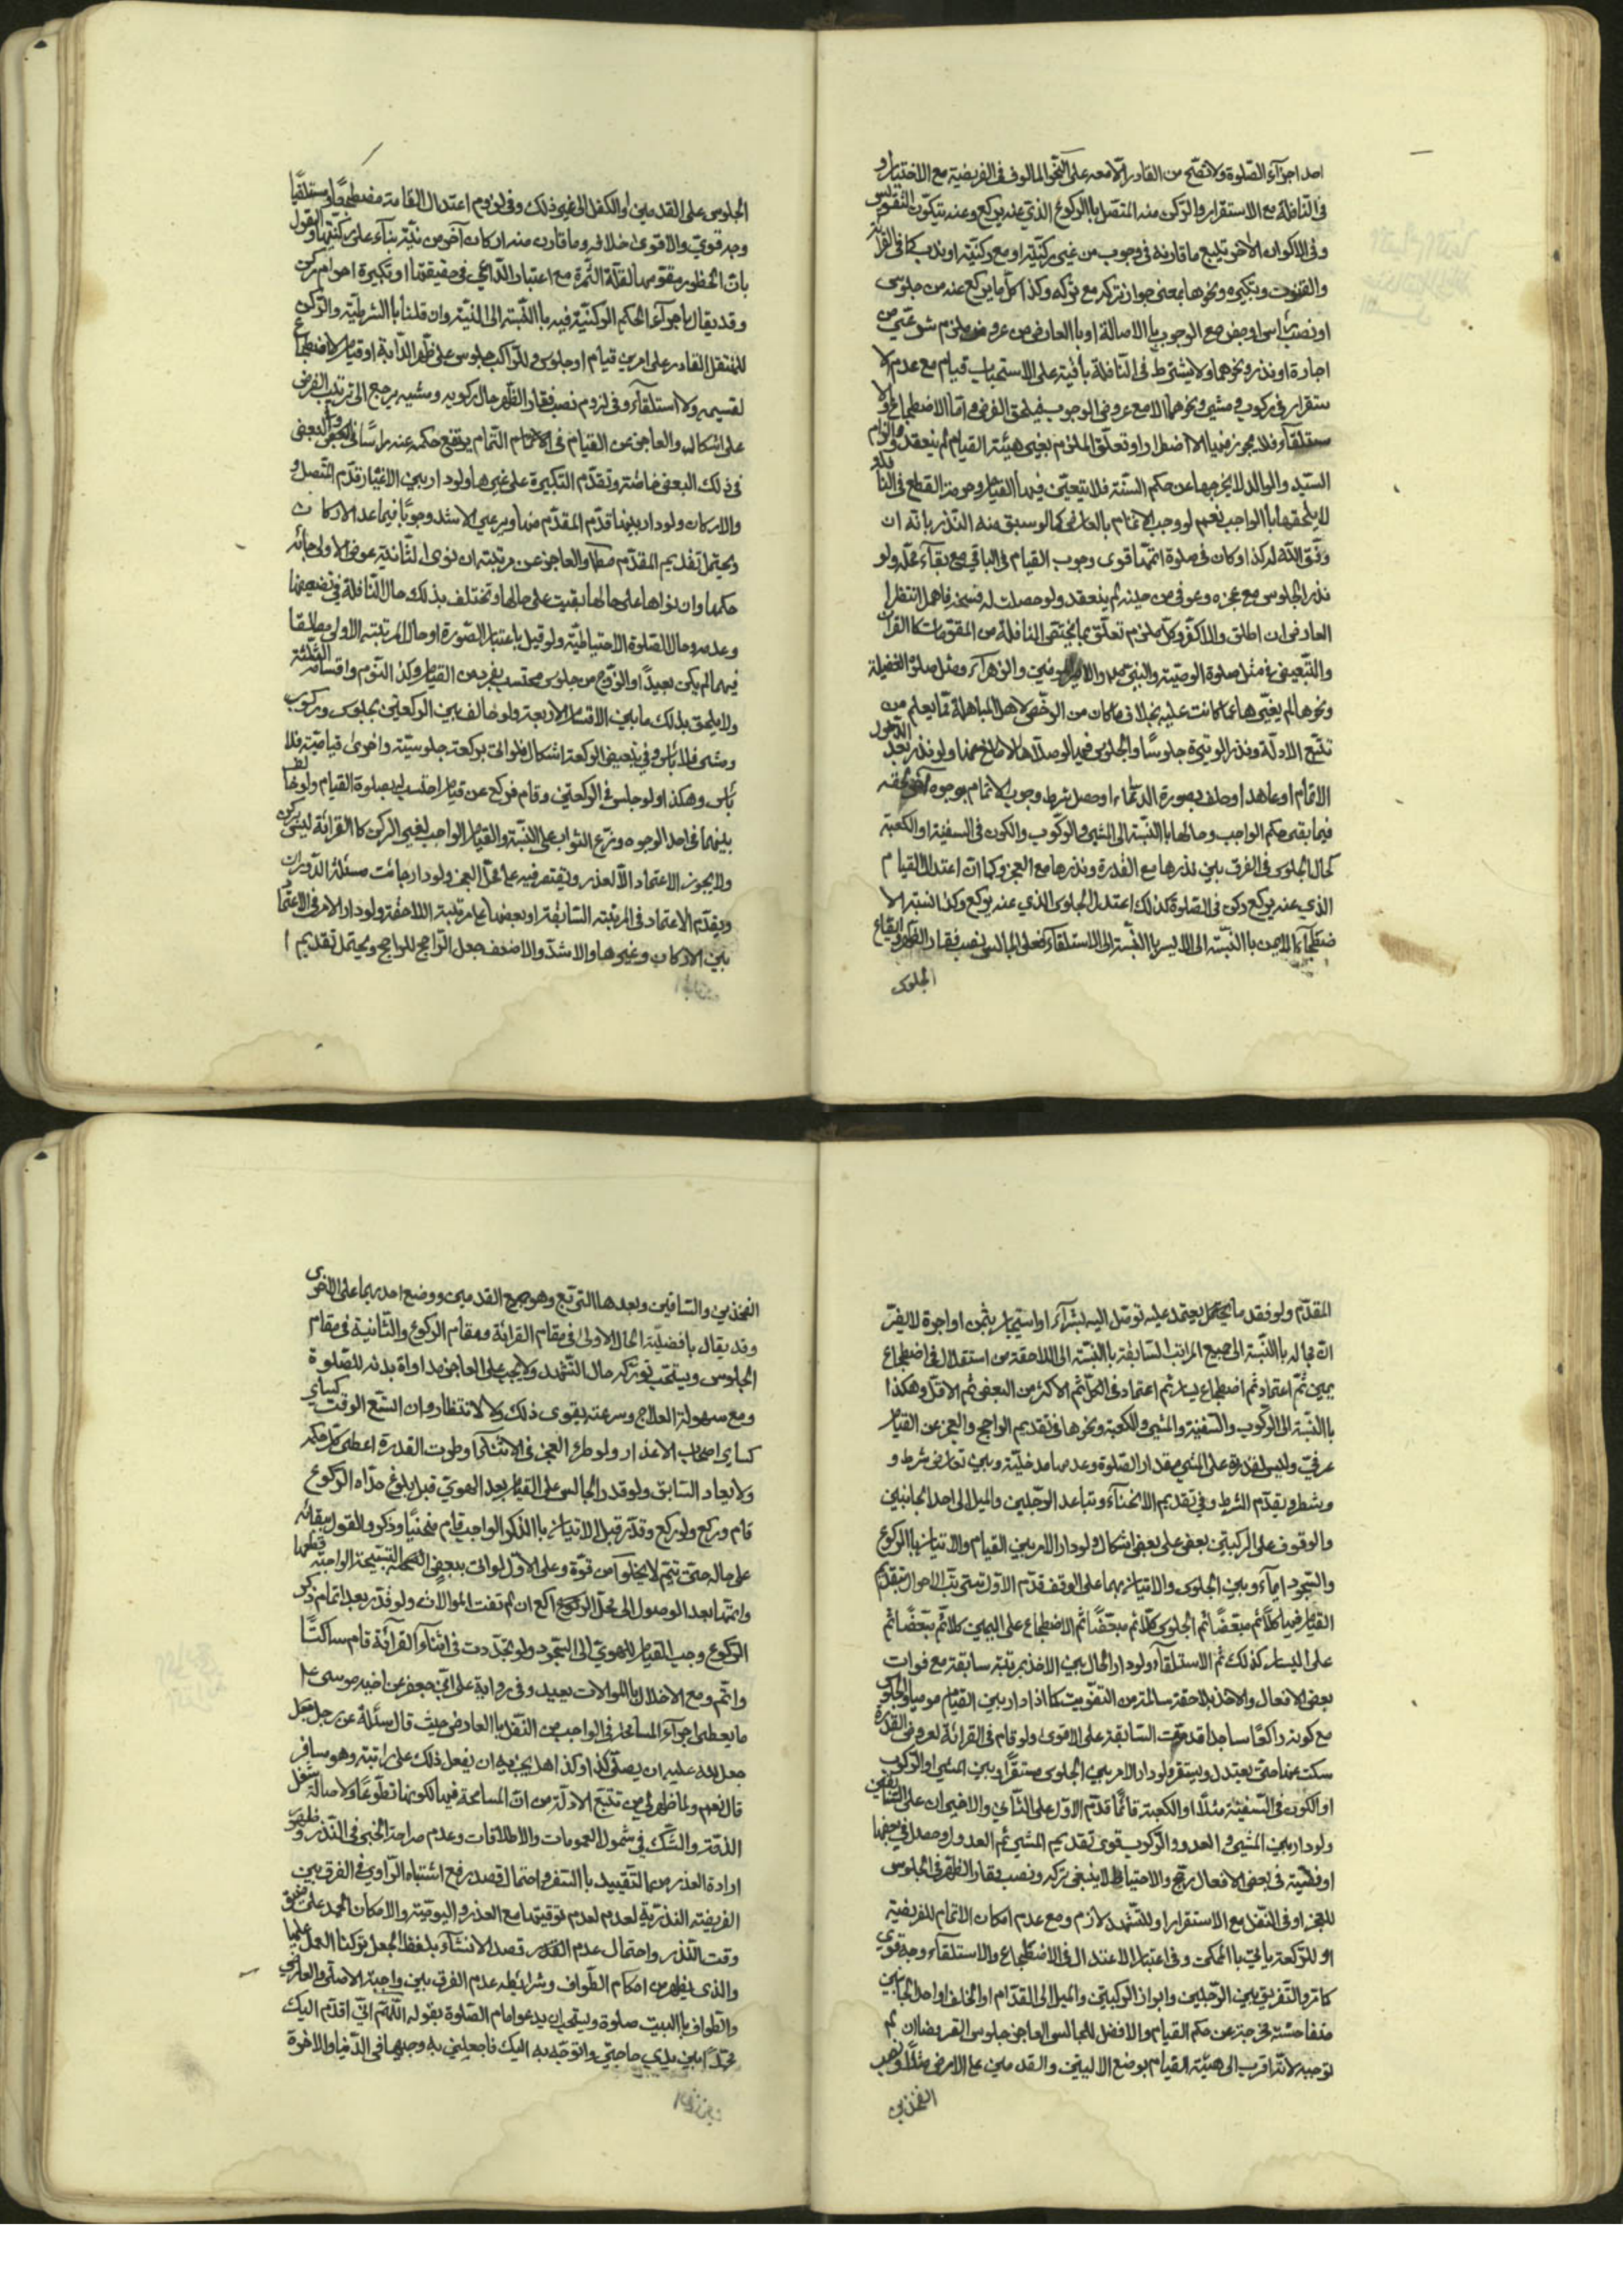 احد اجزآء الصّلوة ولا تصّح من القادر الّا معه على النّحو المالوف فى الفريضة مع الاختيار و
فى النّافلة مع الاستقرار والرّكن منه المتّصل باالركوع الذي عنه يركع وعنه يتكوّن التقوّس
وفى الاكوان الاخر يتبع ما قارنه فى وجوب من غير ركنيّة او مع ركنيّة او ندب كما فى القرائة
والقنوت وتكبيره ونحوها بمعنى جواز تركه مع تركه وكذا كلّما يركع عنه من جلوس
او نصب راس او جفن مع الوجوب باالاصالة او باالعارض من عروض ملزم شرعيّ من
اجارة او نذر ونحوهما ولا يشترط فى النّافلة باقية على الاستحباب قيام مع عدم الا
ستقرار فى ركوب ومشي ونحوهما الا مع عروض الوجوب فيلحق الفرض وامّا الاضطجاع والا
ستلقآء فلا يجوز فيها الا اضطرارا ولو تعلّق الملزم بغير هيئة القيام لم ينعقد والزام
السّيّد والوالد لا يخرجها عن حكم السنّة فلا يتعيّن فيها القيام وحرمة القطع فى النافلة
لا يلحقها باالواجب نعم لو وجب الاتمام بالعارض كما لو سبق منه النّذر بانّه ان
وفّق اللّه له كذا وكان فى صلوة اتمّها قوى وجوب القيام فى الباقي مع بقآء محلّه ولو
نذر الجلوس مع عجزه وعوفى من حينه لم ينعقد ولو حصلت له فسخه فاهمل انتظارا
العارض ان اطلق والّا كفّر وكلّ ملزم تعلّق بما يختصّ النافلة من المقوّمات كالقران
والتّبعيض فى مثل صلوة الوصيّة والنبيّ ص والامير ع والزهرآء ومثل صلوة الغفيلة
ونحوها لم يغيّرها عمّا كانت عليه بخلاف ما كان من الرخّص لاهل المباهلة ممّا يعلم من
تتبّع الادلّة ونذر الوتيرة جلوسًا والجلوس فيما لو صلّاها لا مانع منها ولو نذر بعد الدّخول
الاتمام او عاهد او حلف بصورة الدّعآء او حصل شرط وجوب الاتمام بوجوه اخر لحقه
فيما بقى حكم الواجب وحالها باالنّسبة الى المشي والرّكوب والكون فى السفينة او الكعبة
كحال الجلوس فى الفرق بين نذرها مع القدرة ونذرها مع العجز وكما انّ اعتدال القيام
الذي عنه يركع ركن فى الصّلوة كذلك اعتدال الجلوس الذي عنه يركع وكذا نسبة الا
ضطجآء الايمن باالنّسبة الى الايسر باالنّسبة الى الاستلقآء فعلى الجالس نصب فقار الظّهر وايقاع
الجلوس
الجلوس على القدمين او الكفل الى غير ذلك وفى لزوم اعتدال القامة مضطجعًا او مستلقيًا
وجه قويّ والاقوى خلافه وما قارن منه اركان آخر من نيّة بنآء على ركنيّتها والقول
بانّ الخطور مقوّمها لقلّة الثّمرة مع اعتبار الدّاعي فى حقيقتها او تكبيرة احرام ركن
وقد يقال باجرآء الحكم الركنيّة فيه باالنّسبة الى النّية وان قلنا باالشرطيّة والرّكن
للمتنقل القادر على امرين قيام او جلوس وللرّاكب جلوس على ظهر الدّآبة او قيام لا اضطجاع
لقسيمه ولا استلقآء وفى لزوم نصب فقار الظّهر حال ركوبه ومشيه يرجع الى ترتيب الفرض
على اشكال والعاجز عن القيام فى الاتمام التّمام يرتفع حكمه عنه راسًا فى الكلّ وفى البعض
فى ذلك البعض خاصّة وتقدّم التكبيرة على غيرها ولو دار بين الاغيار قدّم المتّصل و
والاركان ولو دار بينها قدّم المقدّم منها ويرعى الاشد وجوبًا فيما عدا الاركان
ويحتمل تقديم المقدّم مطلقا والعاجز عن مرتبته ان نوى الثّانية عوض الاولى جائه
حكمها وان نواها على حالها بقيت على حالها وتختلف بذلك حال النّافلة فى تضعيفها
وعدمه وحال الصّلوة الاحتياطيّة ولو قيل باعتبار الصّورة او حال المرتبة الاولى مطلقا
فيهما لم يكن بعيدًا والزّوج من جلوس محتسب بفرد من القيام وكذا النّوم واقسامه الثلثة
ولا يلحق بذلك ما بين الاقسام الاربعة ولو خالف بين الركعتين بجلوس وركوب
ومشى فلا باس وفى تبعيض الركعة اشكال فلو اتى بركعة جلوسيّة واخرى قياميّة فلا
باس وهكذا ولو جلس فى الركعتين وقام فركع عن قيام احتسب له بصلوة القيام ولو خالف
بينهما فى احد الوجوه وزّع الثواب على النّسبة والقيام الواجب لغير الركن كالقرائة ليس بركن
ولا يجوز الاعتماد الّا لعذر ويقتصر فيه على محلّ العجز ولو دار جائت مسئلة الدّوران
ويقدّم الاعتماد فى المرتبة السّابقة او بعضها على مرتبة اللاحقة ولو دار الامر فى الاعتماد
بين الاركان وغيرها والاشدّ والاضعف جعل الرّاجح للراجح ويحتمل تقديم ا
المقدّم ولو فقد ما يعتمد عليه توصّل اليه بشرآء او استيجار بثمن او اجرة لا يضرّ
انّ بحاله باالنّسبة الى جميع المراتب السّابقة باالنّسبة الى اللاحقة من استقلال فى اضطجاع
يمين ثمّ اعتماد ثمّ اضطجاع يسار ثم اعتماد فى الكلّ ثم الاكثر من البعض ثم الاقلّ وهكذا
باالنّسبة الى الرّكوب والسّفينة والمشي والكعبة ونحوها فى تقديم الراجح والعجز عن القيام
عرفيّ وليس لقدرة على المشي مقدار الصّلوة وعدمها مدخليّة وبين تعارض شرط و
وشطر يقدّم الشرط وفى تقديم الانحنآء وتباعد الرّجلين والميل الى احد الجانبين
والوقوف على الركبتين بعض على بعض اشكال ولو دار الامر بين القيام والاتيان باالركوع
والسّجود ايمآء وبين الجلوس والاتيان بهما على الوقف قدّم الاوّل وتترتّب الاحوال بتقدّم
القيام فيها كلّا ثم مبعّضًا ثم الجلوس كلّا ثم مبعّضًا ثم الاضطجاع على اليمين كلّا ثم مبعّضًا ثم
على اليسار كذلك ثم الاستلقآء ولو دار الحال بين الاخذ بمرتبة سابقة مع فوات
بعض الافعال والاخذ بلاحقة سالمة من التفويت كما اذا دار بين القيام موميا والجلوس
مع كونه راكعًا ساجدا قدّمت السّابقة على الاقوى ولو قام فى القرائة لعروض القدرة
سكت عنها حتى يعتدل ويستقرّ ولو دار الامر بين الجلوس مستقرًّا وبين المشي او الرّكوب
او الكون فى السّفينة مثلًا او الكعبة قائمًا قدّم الاوّل على الثّاني والاخيران على السّابقين
ولو دار بين المشي والعدو والرّكوب قوى تقديم المشي ثم العدو او حصل فى بعضها
او ظنّيته فى بعض الافعال رجّح والاحتياط لا ينبغى تركه ونصب فقار الظّهر فى الجلوس
للعجز او فى النّفل مع الاستقرار او للتّشهد لازم ومع عدم امكان الاتمام للفريضة
او للرّكعة ياتي باالممكن وفى اعتبار الاعتدال فى الاضطجاع والاستلقآء وجه قوي
كما مرّ والتّفريق بين الرّجلين وابراز الركبتين والميل الى القدّام او الخلف او احد الجانبين
متفاحشة مخرجة عن حكم القيام والافضل للجالس العاجز جلوس القرفصا ان لم
توجبه لانّه اقرب الى هيئة القيام بوضع الاليتين والقدمين على الارض مثلًا ونصب
الفخذين
الفخذين والسّاقين وبعدها التربّع وهو جمع القدمين ووضع احديهما على الاخرى
وقد يقال بافضليّة الحال الاولى فى مقام القرائة ومقام الركوع والثّانية فى مقام
الجلوس ويستحّب تورّكه حال التّشهد ولا يجب على العاجز مداواة بدنه للصّلوة
ومع سهولة العلاج وسرعته يقوى ذلك ولا الانتظار وان اتّسع الوقت كسائر
كسائر اصحاب الاعذار ولو طرء العجز فى الاثنآء او طرت القدرة اعطى كلّ حكمه
ولا يعاد السّابق ولو قدر الجالس على القيام بعد الهويّ قبل بلوغ حدّاه الركوع
قام وركع ولو ركع وقدر قبل الاتيان باالذّكر الواجب قام منحنيًا وذكر والقول ببقائه
على حاله حتى يتم لا يخلو من قوّة وعلى الاوّل لو اتى ببعض التّسبيحة الواجبة قطعها
واتمّها بعد الوصول الى محلّ الركوع راكع ان لم تفت الموالات ولو قدر بعد اتمام ذكر
الركوع وجب القيام للهويّ الى السّجود ولو تجدّدت فى اثنآء القرآئة قام ساكتًا
واتّم ومع الاخلال باالموالات يعيد وفى رواية على ابن جعفر عن اخيه موسى ع
ما يعطى اجرآء المسامحة فى الواجب من النّفل باالعارض حيث قال سئلته عن رجل جعل
للّه عليه ان يصلّى كذا وكذا هل يجزيه ان يفعل ذلك على دابّته وهو مسافر
قال نعم ولما ظهر لي من تتبّع الادلّة من انّ المسامحة فيها لكونها تطوّعًا ولاصالة شغل
الذمّة والشّكّ فى شمول العمومات والاطلاقات وعدم صراحة الخبر فى النّذر وظهور
ارادة العذر من التّقييد باالسّفر واحتمال قصد رفع اشتباه الرّاوي فى الفرق بين
الفريضة النذريّة لعدم توقيتها مع العذر واليوميّة والامكان الحمد على ضيق
وقت النّذر واحتمال عدم القدر قصد الانشآء بلفظ الجعل تركنا العمل عليها
والذى يظهر من احكام الطّواف وشرائطه عدم الفرق بين واجبه الاصلّى والعارضي
والطّواف باالبيت صلوة ويستحب ان يدعو امام الصّلوة بقوله اللّهمّ انّي اقدّم اليك
محمّدًا بين يدي حاجتي واتوجّه به اليك فاجعلني به وجيها فى الدّنيا والاخرة